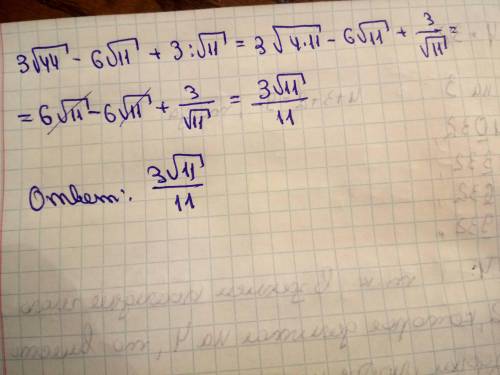 3√44 - 6√11 + 3 : √11 = 3√4·11 - 6√11 + 3/√11 =
= 6√11 - 6√11 + 3/√11 = 3√11/11
Ответ: 3√11/11